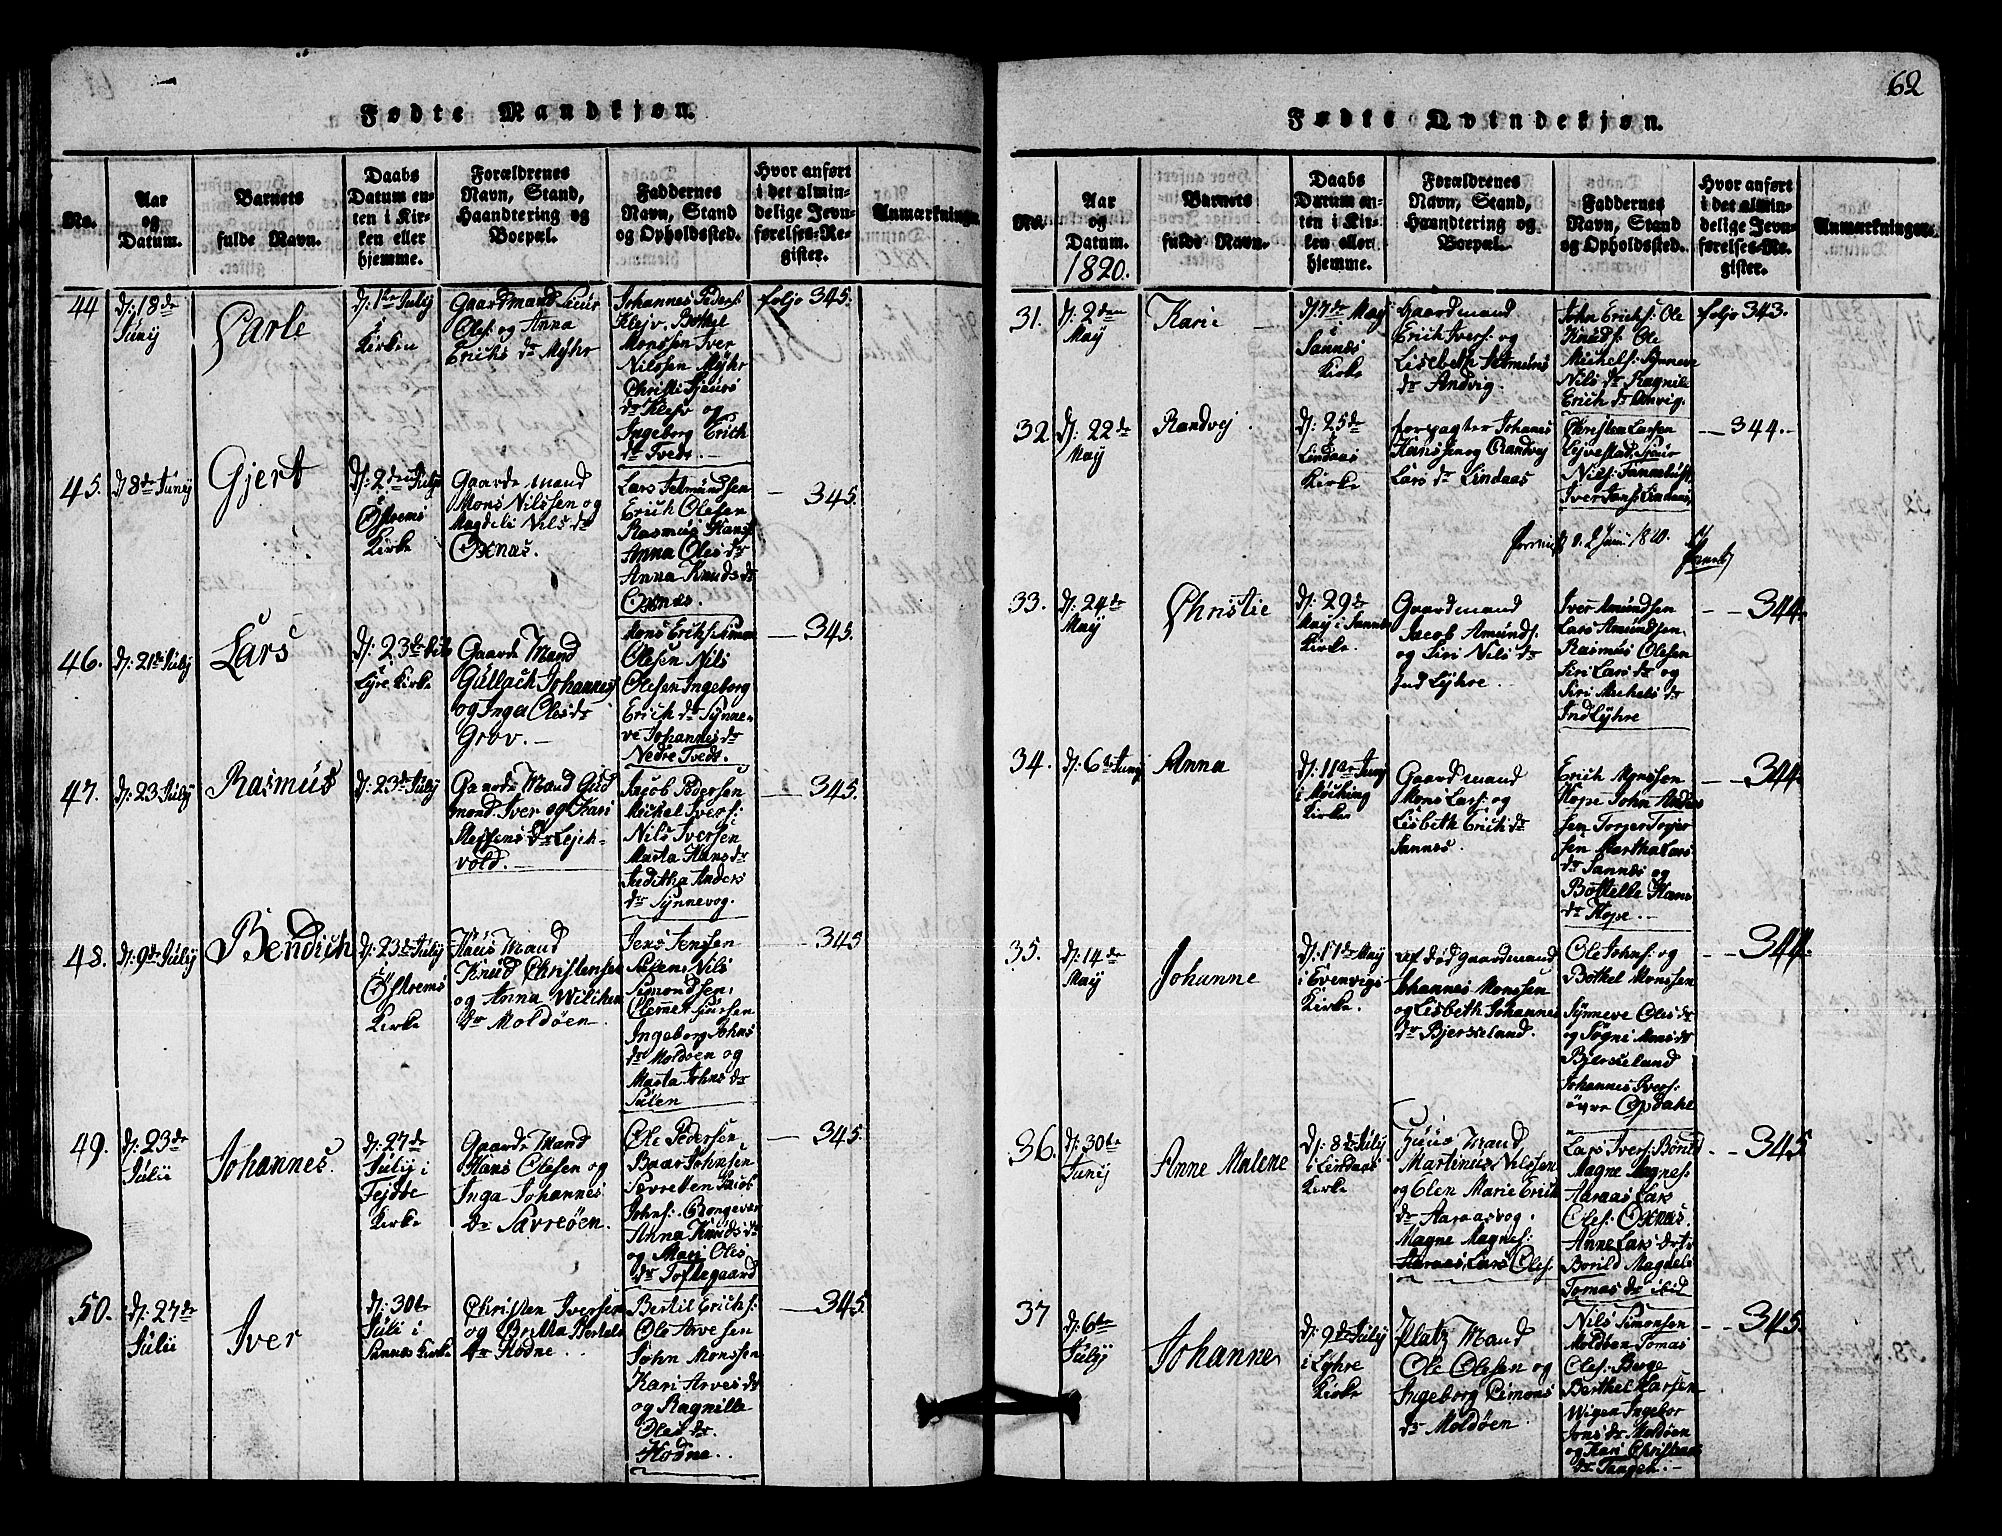 Fødte Mandkjøn.
No.
Aar
og
Datum.
Barnets
fulde Navn.
Daabs
Datum en-
ten i Kir-
ken eller
hjemme.
Forældrenes
Navn, Stand,
Haandtering og
Boepæl.
Faddernes
Navn, Stand
og Opholdssted.
Hvor anført
i det almin-
delige Jevn-
førelses-Re-
gister.
Anmærkninger.
44
d: 18de
Juny
d: 1te July
Kirken
Gaardmand
Oles: og Anna
Erichs dr Myhr
Johannes Peders:
Klejv. Bottel
Monssen Iver
Nilssen Myhr
Christi
dr Klejv og
Ingeborg Erich
dr Tvedt.
foljo 345.
45.
d 8de Juny
Gjert
d: 2den July
i
Østrems
Kirke
Gaarde mand
Mons Nilssen og
Magdeli Nils dr
Oxnas.
Lars
Erich Olesen
Rasmus Hans
Anna Oles dr
Anna Knuds dr
Oxnæs.
345.
46.
d: 21de July
Lars
d: 23de
Lyre Kirke
Gaarde Mand
Gullach Johannes
og Inger Oles dr
Grov.
Mons Eriks
Olesen Nils
Olesen Ingeborg
Erich dr Synne-
ve Johannes dr
Nedre Tvedt.
345.
47.
d: 23 July
Rasmus
d: 23de July
Gaarde Mand Gud
mond Iver og Kari
Steffens dr Lejch-
vold.
Jacob Pedersen
Michel Ivers:
Nils Iversen
Marta Hans dr
Anders
dr Synnevog.
345.
48.
d: 9de July
Bendich
d: 23de July
i
Østrems
Kirke
Huus Mand
Knud Christensen
og Anna Wilchen
dr Moldøen.
Jens Jenssen
Sulen, Nils
Simondsen,
Clemmet
Ingeborg Johns
dr Moldøen og
Marta Johns dr
Sulen
345
49.
d: 23de
Julii
Johannes.
d: 27de
July i
Kirke
Gaarde Mand
Hans Olesen og
Inga Johannes
dr Savreøen.
Ole Pedersen
Baar Johnsen
Johns:
Anna Knuds dr
og Mari Oles
dr Toftegaard
345.
50.
d: 27de
Julii
Iver
d: 30te
Juli i
Sannes Kirke
Christen Iversen
og Britha Bertels
dr Hodne.
Bertil Erichs:
Ole Arvesen
John Monssen
Kari Arves dr
og Ragnille
Oles dr
Hodne.
345.
62
Fødte Qvindekjøn.
No.
Aar
og
Datum.
1820.
Barnets
fulde Navn.
Daabs
Datum en-
ten i Kir-
ken eller
hjemme.
Forældrenes
Navn, Stand,
Haandtering og
Boepæl.
Faddernes
Navn, Stand
og Opholdssted.
Hvor anført
i det almin-
delige Jevn-
førelses-Re-
gister.
Anmærkninger.
31.
d: 2den
May
Karie
d 7de May
i
Sannes
Kirke
Gaardmand
Erich Ivers: og
Lisebeth
dr Andvig.
John Erichs: Ole
Knuds: Ole
Michels: Synneve
Nils dr Ragnile
Erich dr Anvig.
foljo 343.
32
d: 22de
May
Randvej
d: 25de
i
Lindaas
Kirke
forpagter Johanes
Hanssen og Randvej
Lars dr Lindaas
Christen Larsen
Nils:
Iver Jans: Lindaas.
344.
d. 2 Juni 1820.
33.
d: 24de
May
Christie
d: 29de
May i Sannes
Kirke.
Gaardmand
Jacob Amunds:
og Siri Nils dr
Ind Lyhre.
Iver Amundsen
Lars Amundsen
Rasmus Olesen
Siri Lars dr og
Siri Michels dr
Ind Lyhre
344.
34.
d: 6te Juny
Anna
d: 11te Juny
i
Kirke
Gaardmand
Mons Lars: og
Lisbeth Erich dr
Sannes.
Erich Monssen
Hope John Anders
sen Torger Torger
sen Martha Lars
dr Sannes og
Bottelle Hans
dr Hope.
344.
35.
d: 14de
May
Johanne
d: 17de May
i Evenvigs
Kirke.
Gaardmand
Johannes Monssen
og Lisbeth Johannes
dr Bjerkeland.
Ole Johns: og
Bottel Monssen
Synneve Oles dr
og Søgni Mons dr
Bjerkeland
Johannes Ivers:
øvre Opdahl
344.
36.
d: 30te
Juny
Anne Malene
d: 8de July
i Lindaas
Kirke
Huus Mand
Martinus Nilssen
og Elen Marie Erich
dr Aaraasvog.
Magne Magnes:
Aaraas, Lars Oles:
Lars Ivers: Borild
Magne Magnes:
Aaraas Lars
Oles: Oxnas.
Anne Lars
Borild Magdeli
Tomas dr ibid
345
37
d: 6te
July
Johanne
d: 9de July
i Lyhre
Kirke
Platz Mand
Ole Olesen og
Ingeborg Simons
dr Moldøen.
Nils Simonsen
Moldøen Tomas
Oles: Berge
Berthel Larsen
Wigen Ingebor
Jons dr Moldøen
og Kari Christians
dr Tangen.
345.